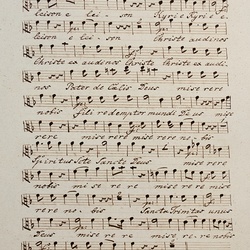 leison e lei - son Kyrie Kyrie e
leison e lei - son Christe audi nos
Christe ex audi nos Christe Christe ex audi
nos Pater de Celis Deus mise rere
nobis fili redemptor mundi Deus mise
rere mise rere mise rere no - bis
Spiritus Ste Sancte Deus mise rere
nobis mise re re mise re re mise
rere no - bis Sancta Trinitas unus
rere Deus mise re re mise rere